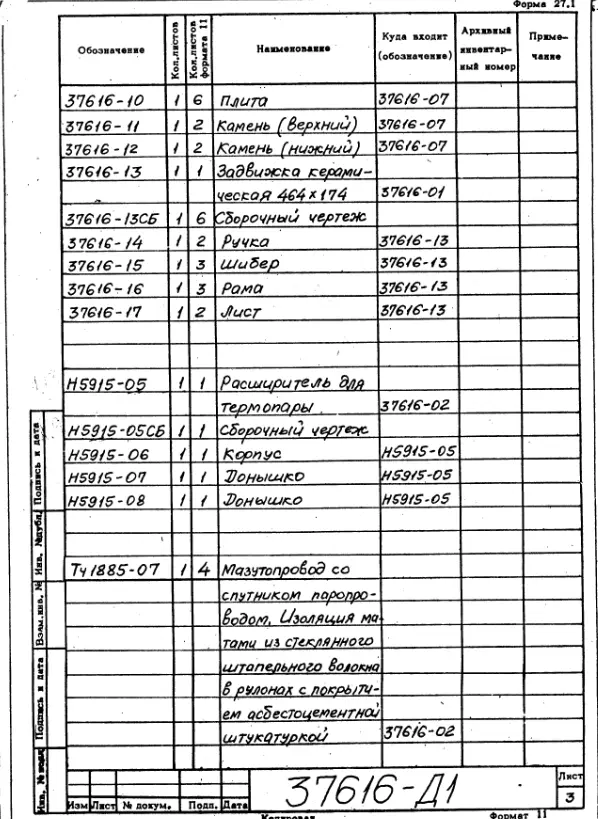 Форма 27.1
Обозначение Кол.листов Кол.листов формата 11 Наименование Куда входит (обозначение) Архивный инвентарный номер Примечание
37616-10 1 6 Плита 37616-07
37616-11 1 2 Камень (верхний) 37616-07
37616-12 1 2 Камень (нижний) 37616-07
37616-13 1 1 Задвижка керами-
ческая 464×174 37616-01
37616-13СБ 1 6 Сборочный чертеж
37616-14 1 2 Ручка 37616-13
37616-15 1 3 Шибер 37616-13
37616-16 1 3 Рама 37616-13
37616-17 1 2 Лист 37616-13
Н5915-05 1 1 Расширитель для
термопары 37616-02
Н5915-05СБ 1 1 Сборочный чертеж
Н5915-06 1 1 Корпус Н5915-05
Н5915-07 1 1 Донышко Н5915-05
Н5915-08 1 1 Донышко Н5915-05
Тч1885-07 1 4 Мазутопровод со
спутником паропро-
водом. Изоляция ма-
тами из стеклянного
штапельного волокна
в рулонах с покрыти-
ем асбестоцементной
штукатуркой 37616-02
Инв. №дубл. Подпись и дата
Взам.инв. №
Подпись и дата
Инв. № подл.
Изм Лист № докум. Подп. Дата
37616-Д1
Лист
3
Копировал Формат 11